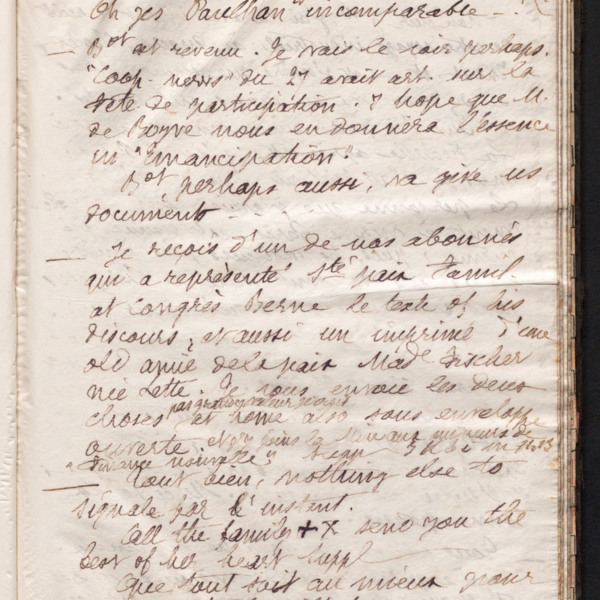 Oh yes Paulhan "incomparable" - .
- Bot est revenu. Je vais le voir perhaps.
"Coop. news" du 27 avait art. sur la
fête de participation. I hope que M.
de Boyve nous en donnera l'essence
in "Emancipation".
Bot perhaps aussi, va give us
documents - .
- Je reçois d'un de nos abonnés
qui a représenté Sté paix Famil.
at Congrès Berne le texte of his
discours, et aussi un imprimé d'une
old amie de la paix Made Fischer
née Lette. Je vous envoie les deux
choses at home also sous enveloppe
ouverte.
nouvelle"
- Tout bien, nothing else to
signale for l'instant.
All the family + X send you the
best of her heart suppl
Que tout soit au mieux pour